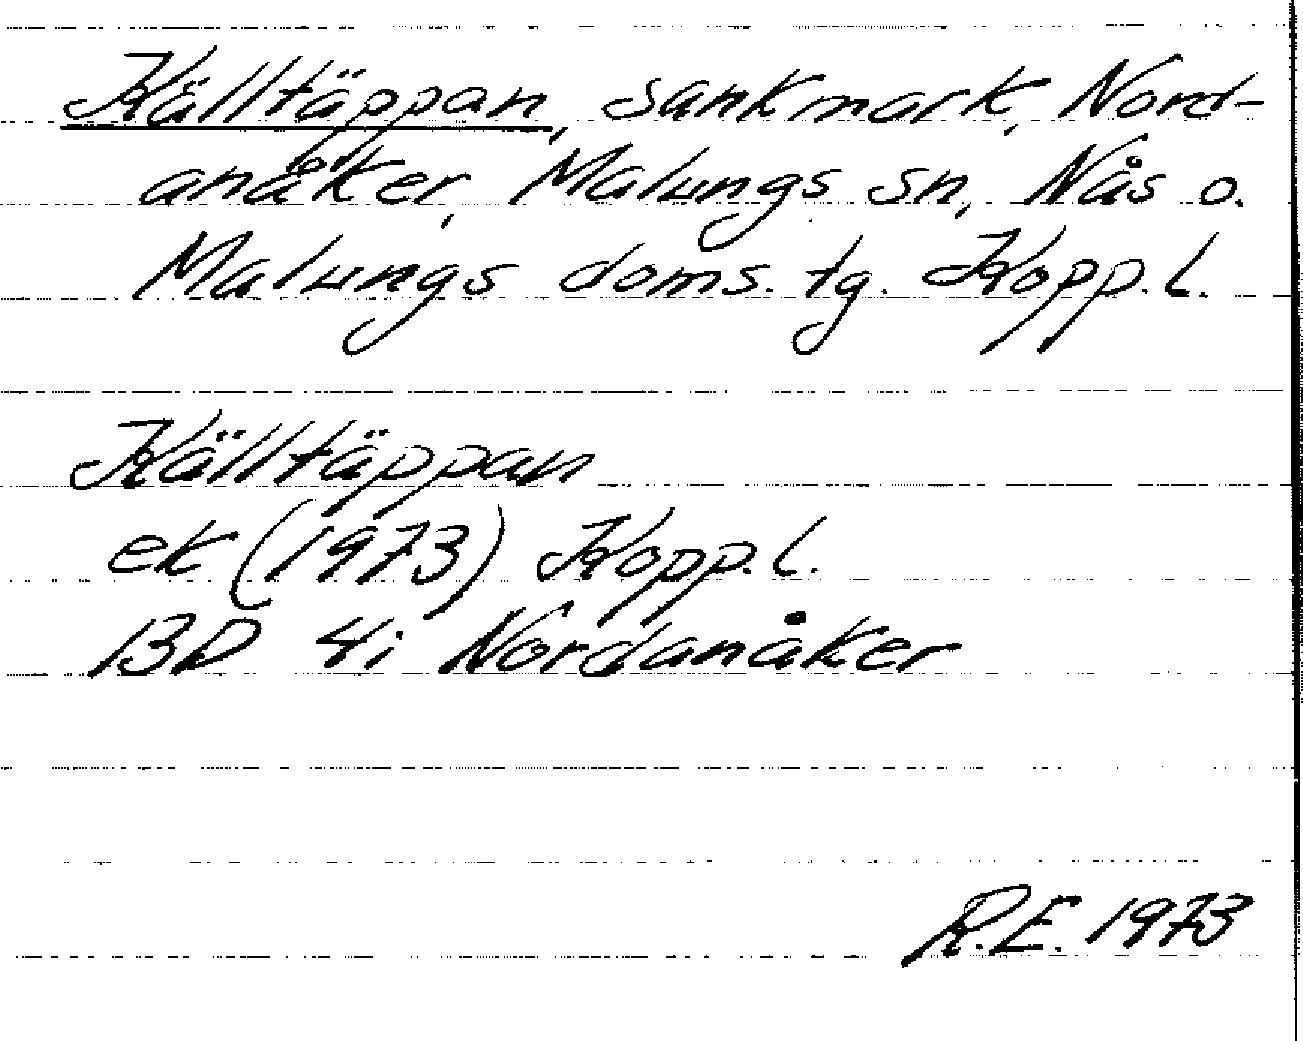 Källtäppan, sankmark, Nord-
anåker, Malungs sn, Nås o.
Malungs doms. tg. Kopp. l.
Källtäppan
ek (1973) Kopp. l.
13D 4i Nordanåker
R.E. 1973